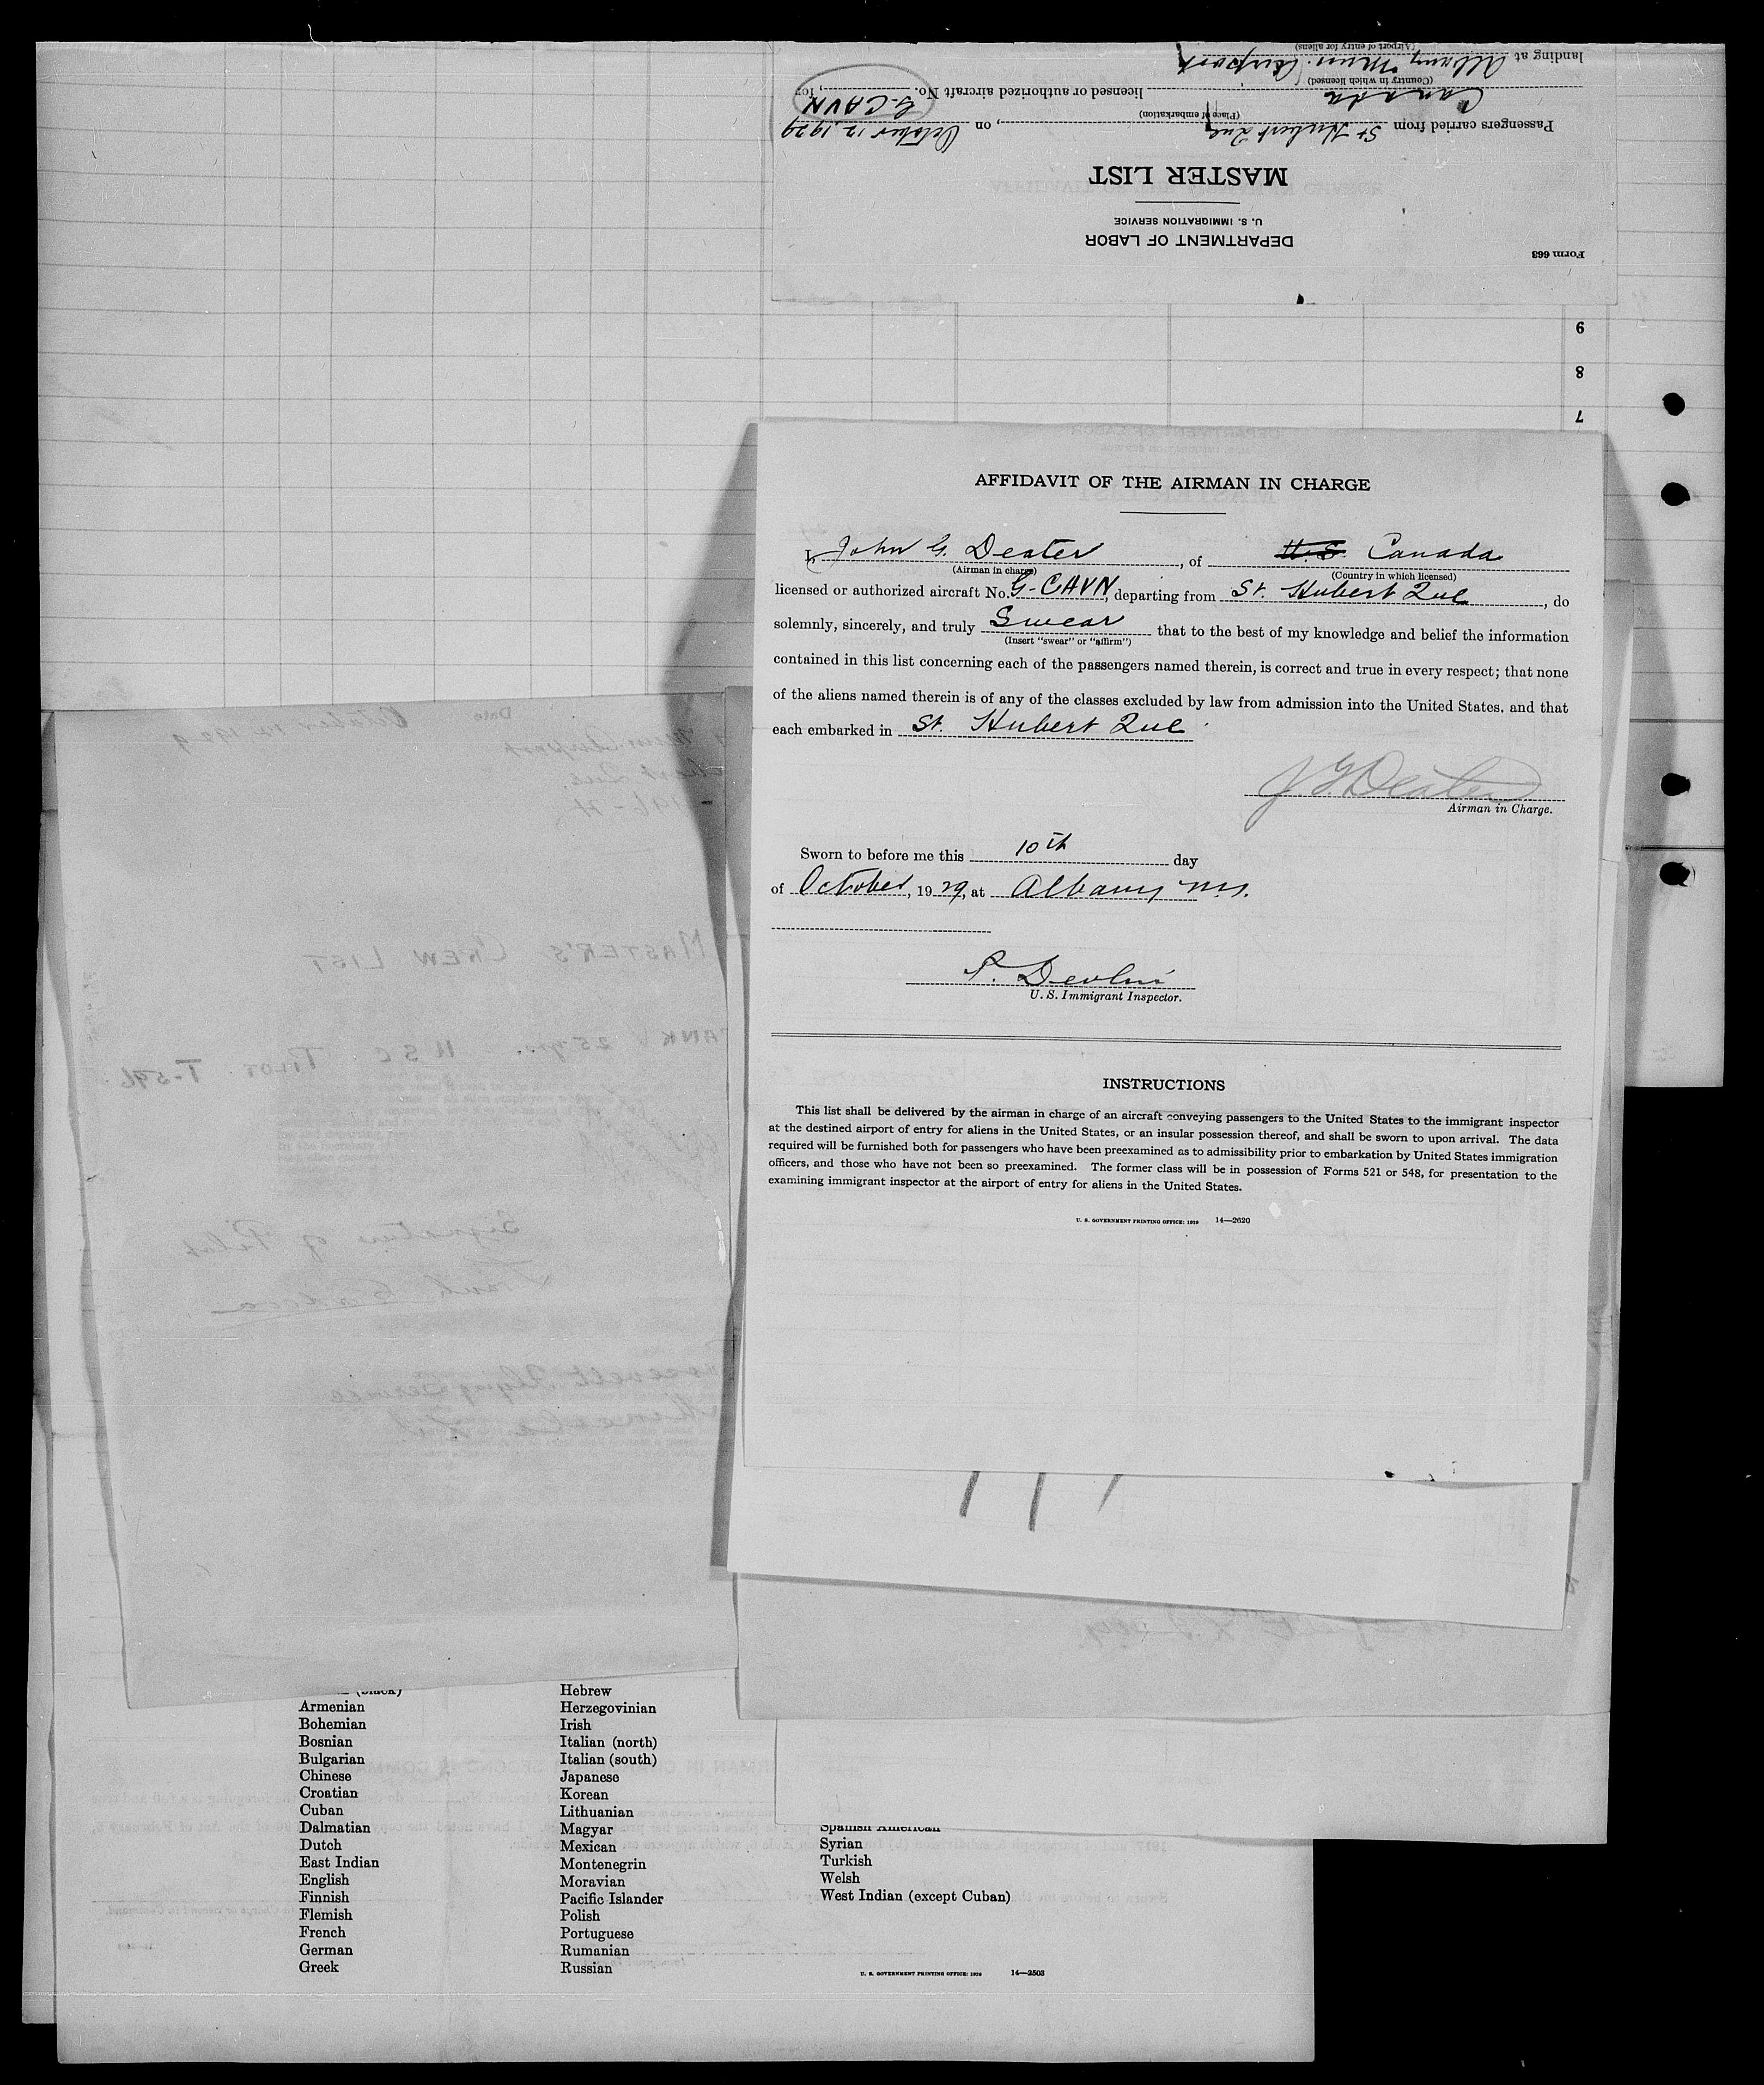 Form 663
DEPARTMENT OF LABOR
U. S. IMMIGRATION SERVICE
MASTER LIST
Passengers carried from St Hubert Que, on October 12, 1929
(Place of embarkation)
Canada licensed or authorized aircraft No. G-CAVN, for
(Country in which licensed)
landing at Albany Mun. Airport
(Airport of entry for aliens)
9
8
7
AFFIDAVIT OF THE AIRMAN IN CHARGE
I, John G. Deater, of U.S. Canada
(Airman in charge) (Country in which licensed)
licensed or authorized aircraft No. G-CAVN, departing from St. Hubert Que, do
solemnly, sincerely, and truly Swear that to the best of my knowledge and belief the information
(Insert "swear" or "affirm")
contained in this list concerning each of the passengers named therein, is correct and true in every respect; that none
of the aliens named therein is of any of the classes excluded by law from admission into the United States, and that
each embarked in St. Hubert Que.
J G Deater
Airman in Charge.
Sworn to before me this 10th day
of October, 1929, at Albany N.Y.
P. Devlin
U. S. Immigrant Inspector.
INSTRUCTIONS
This list shall be delivered by the airman in charge of an aircraft conveying passengers to the United States to the immigrant inspector
at the destined airport of entry for aliens in the United States, or an insular possession thereof, and shall be sworn to upon arrival. The data
required will be furnished both for passengers who have been preexamined as to admissibility prior to embarkation by United States immigration
officers, and those who have not been so preexamined. The former class will be in possession of Forms 521 or 548, for presentation to the
examining immigrant inspector at the airport of entry for aliens in the United States.
U. S. GOVERNMENT PRINTING OFFICE: 1929 14—2620
Date October 12 1929
Mun. Airport
MASTER'S CREW LIST
25 yrs. U S C PILOT T-596
Signature of Pilot
Roosevelt Flying Service
(black)
Armenian
Bohemian
Bosnian
Bulgarian
Chinese
Croatian
Cuban
Dalmatian
Dutch
East Indian
English
Finnish
Flemish
French
German
Greek
Hebrew
Herzegovinian
Irish
Italian (north)
Italian (south)
Japanese
Korean
Lithuanian
Magyar
Mexican
Montenegrin
Moravian
Pacific Islander
Polish
Portuguese
Rumanian
Russian
Spanish American
Syrian
Turkish
Welsh
West Indian (except Cuban)
U. S. GOVERNMENT PRINTING OFFICE: 1926 14—2503